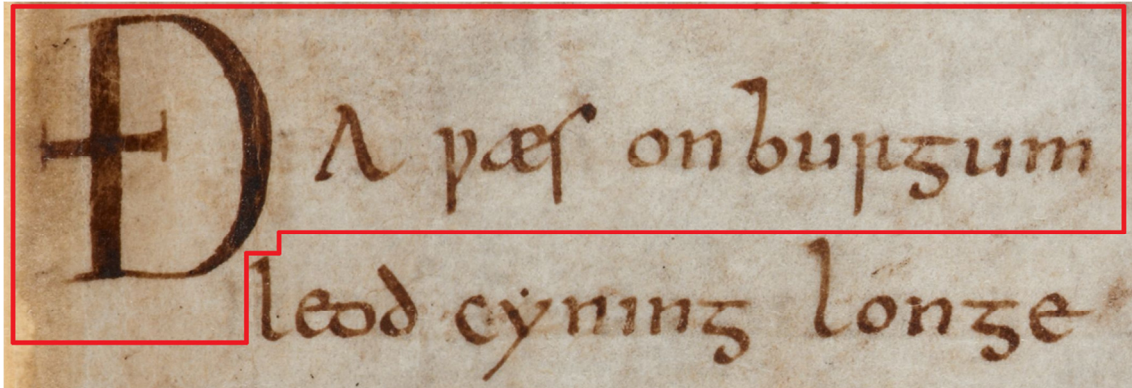 ÐA ƿæſ on burgum
leod cyning longe